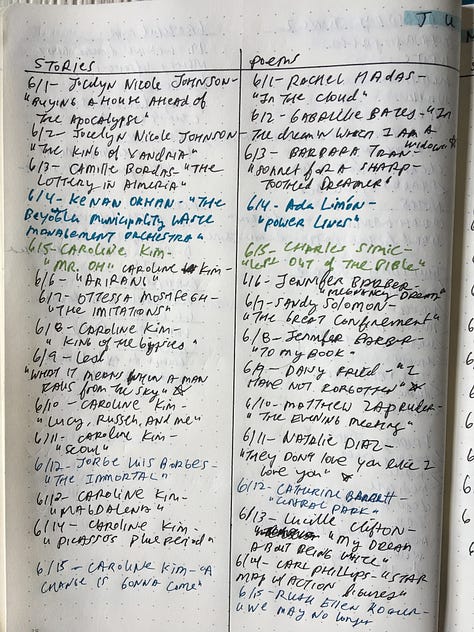 J U
Stories
6/1- Jocelyn Nicole Johnson-
"Buying a House Ahead of
The Apocalypse"
6/2- Jocelyn Nicole Johnson-
"The King of Xandria"
6/3- Camille Bordas- "The
Lottery in Almeria"
6/4- Kenan Orhan- "The
Beyoğlu Municipality Waste
Management Orchestra"
6/5- Caroline Kim-
"Mr. Oh" Caroline Kim-
6/6- "Arirang"
6/7- Ottessa Moshfegh-
"The Imitations"
6/8- Caroline Kim-
"King of the
6/9-
"What it Means When a Man
Falls from the Sky"
6/10- Caroline Kim-
"Lucy, Russell, and Me"
6/11- Caroline Kim-
"Seoul"
6/12- Jorge Luis Borges-
"The Immortal"
Caroline Kim-
"Magdalena"
6/14- Caroline Kim-
"Picasso's Blue Period"
6/15- Caroline Kim- "A
Change is Gonna Come"
Poems
6/1- Rachel Hadas-
"In the Cloud"
6/2- Gabrielle Bates- "In
The dream in which I am a
widow"
6/3- Barbara Tran-
"Sonnet for a Sharp-
Toothed Dreamer"
6/4- Ada Limón-
"Power Lines"
6/5- Charles Simic-
"Left Out of the Bible"
6/6- Jennifer Barber-
"Pregnancy Dream"
6/7- Sandy Solomon-
"The Great Confinement"
6/8- Jennifer Barber-
"To My Book"
6/9- "I
Have Not Forgotten"
6/10- Matthew Zapruder-
"The Evening Meeting"
6/11- Natalie Diaz-
"They Don't Love You Like I
Love You"
6/12- Catherine Barnett-
"Central Park"
6/13- Lucille Clifton-
"My Dream
About Being White"
6/14- Carl Phillips- "Star
Map w/ Action Figures"
6/15- Ruth Ellen Kocher-
"We May No Longer